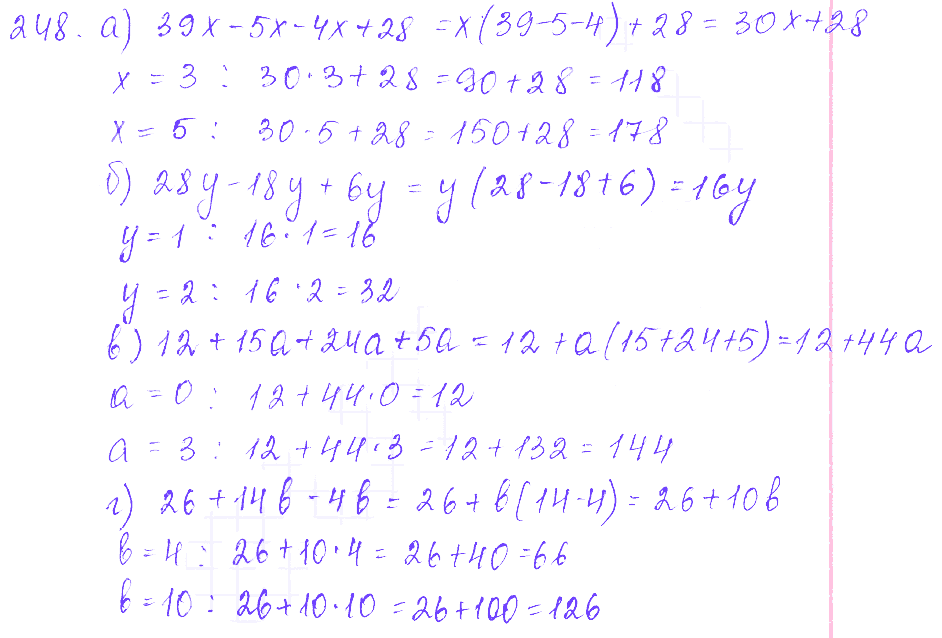 248. а) 39x - 5x - 4x + 28 = x(39-5-4) + 28 = 30x + 28
x = 3 : 30·3 + 28 = 90 + 28 = 118
x = 5 : 30·5 + 28 = 150 + 28 = 178
б) 28y - 18y + 6y = y(28 - 18 + 6) = 16y
y = 1 : 16·1 = 16
y = 2 : 16·2 = 32
в) 12 + 15a + 24a + 5a = 12 + a(15 + 24 + 5) = 12 + 44a
a = 0 : 12 + 44·0 = 12
a = 3 : 12 + 44·3 = 12 + 132 = 144
г) 26 + 14в - 4в = 26 + в(14-4) = 26 + 10в
в = 4 : 26 + 10·4 = 26 + 40 = 66
в = 10 : 26 + 10·10 = 26 + 100 = 126